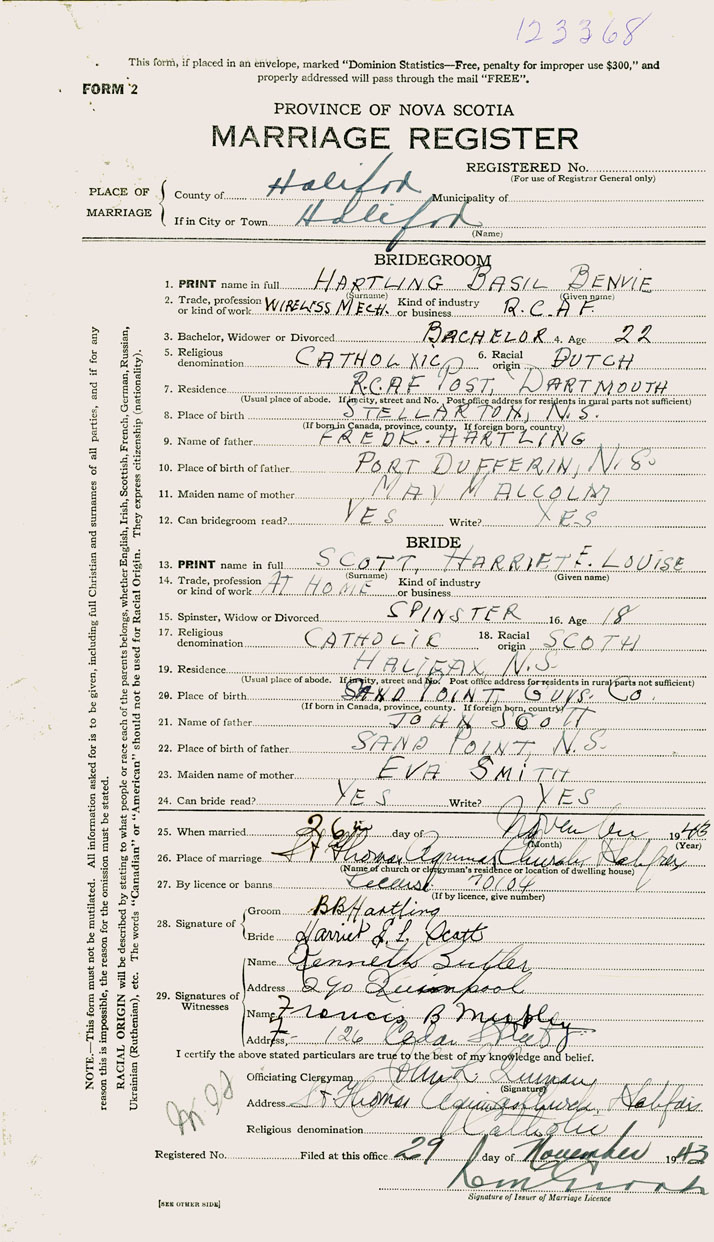 123368
This form, if placed in an envelope, marked "Dominion Statistics—Free, penalty for improper use $300," and
properly addressed will pass through the mail "FREE".
FORM 2
PROVINCE OF NOVA SCOTIA
MARRIAGE REGISTER
REGISTERED No.
(For use of Registrar General only)
PLACE OF MARRIAGE
County of Halifax Municipality of
If in City or Town Halifax
(Name)
BRIDEGROOM
1. PRINT name in full HARTLING BASIL BENVIE
(Surname) (Given name)
2. Trade, profession or kind of work WIRELESS MECH. Kind of industry or business R.C.A.F.
3. Bachelor, Widower or Divorced BACHELOR 4. Age 22
5. Religious denomination CATHOLXIC 6. Racial origin DUTCH
7. Residence R.C.A.F POST, DARTMOUTH
(Usual place of abode. If in city, street and No. Post office address for residents in rural parts not sufficient)
8. Place of birth STELLARTON, N.S.
(If born in Canada, province, county. If foreign born, country)
9. Name of father FREDK. HARTLING
10. Place of birth of father PORT DUFFERIN, N.S.
11. Maiden name of mother MAY MALCOLM
12. Can bridegroom read? YES Write? YES
BRIDE
13. PRINT name in full SCOTT, HARRIET E. LOUISE
(Surname) (Given name)
14. Trade, profession or kind of work AT HOME Kind of industry or business
15. Spinster, Widow or Divorced SPINSTER 16. Age 18
17. Religious denomination CATHOLIC 18. Racial origin SCOTH
19. Residence HALIFAX N.S.
(Usual place of abode. If in city, street and No. Post office address for residents in rural parts not sufficient)
20. Place of birth SAND POINT, GUYS. CO.
(If born in Canada, province, county. If foreign born, country)
21. Name of father JOHN SCOTT
22. Place of birth of father SAND POINT, N.S.
23. Maiden name of mother EVA SMITH
24. Can bride read? YES Write? YES
25. When married 26th day of November 1943
(Month) (Year)
26. Place of marriage St Thomas Aquinas Church, Halifax
(Name of church or clergyman's residence or location of dwelling house)
27. By licence or banns License 70104
(If by licence, give number)
28. Signature of
Groom BBHartling
Bride Harriet E. L. Scott
29. Signatures of Witnesses
Name Kenneth Butler
Address 290 Quinpool
Name Francis B
Address, 126 Cedar Street
I certify the above stated particulars are true to the best of my knowledge and belief.
Officiating Clergyman
(Signature)
Address St Thomas Aquinas Church, Halifax
Religious denomination Catholic
Registered No. Filed at this office 29 day of November 1943
Signature of Issuer of Marriage Licence
[SEE OTHER SIDE]
NOTE.—This form must not be mutilated. All information asked for is to be given, including full Christian and surnames of all parties, and if for any
reason this is impossible, the reason for the omission must be stated.
RACIAL ORIGIN will be described by stating to what people or race each of the parents belongs, whether English, Irish, Scottish, French, German, Russian,
Ukrainian (Ruthenian), etc. The words "Canadian" or "American" should not be used for Racial Origin. They express citizenship (nationality).